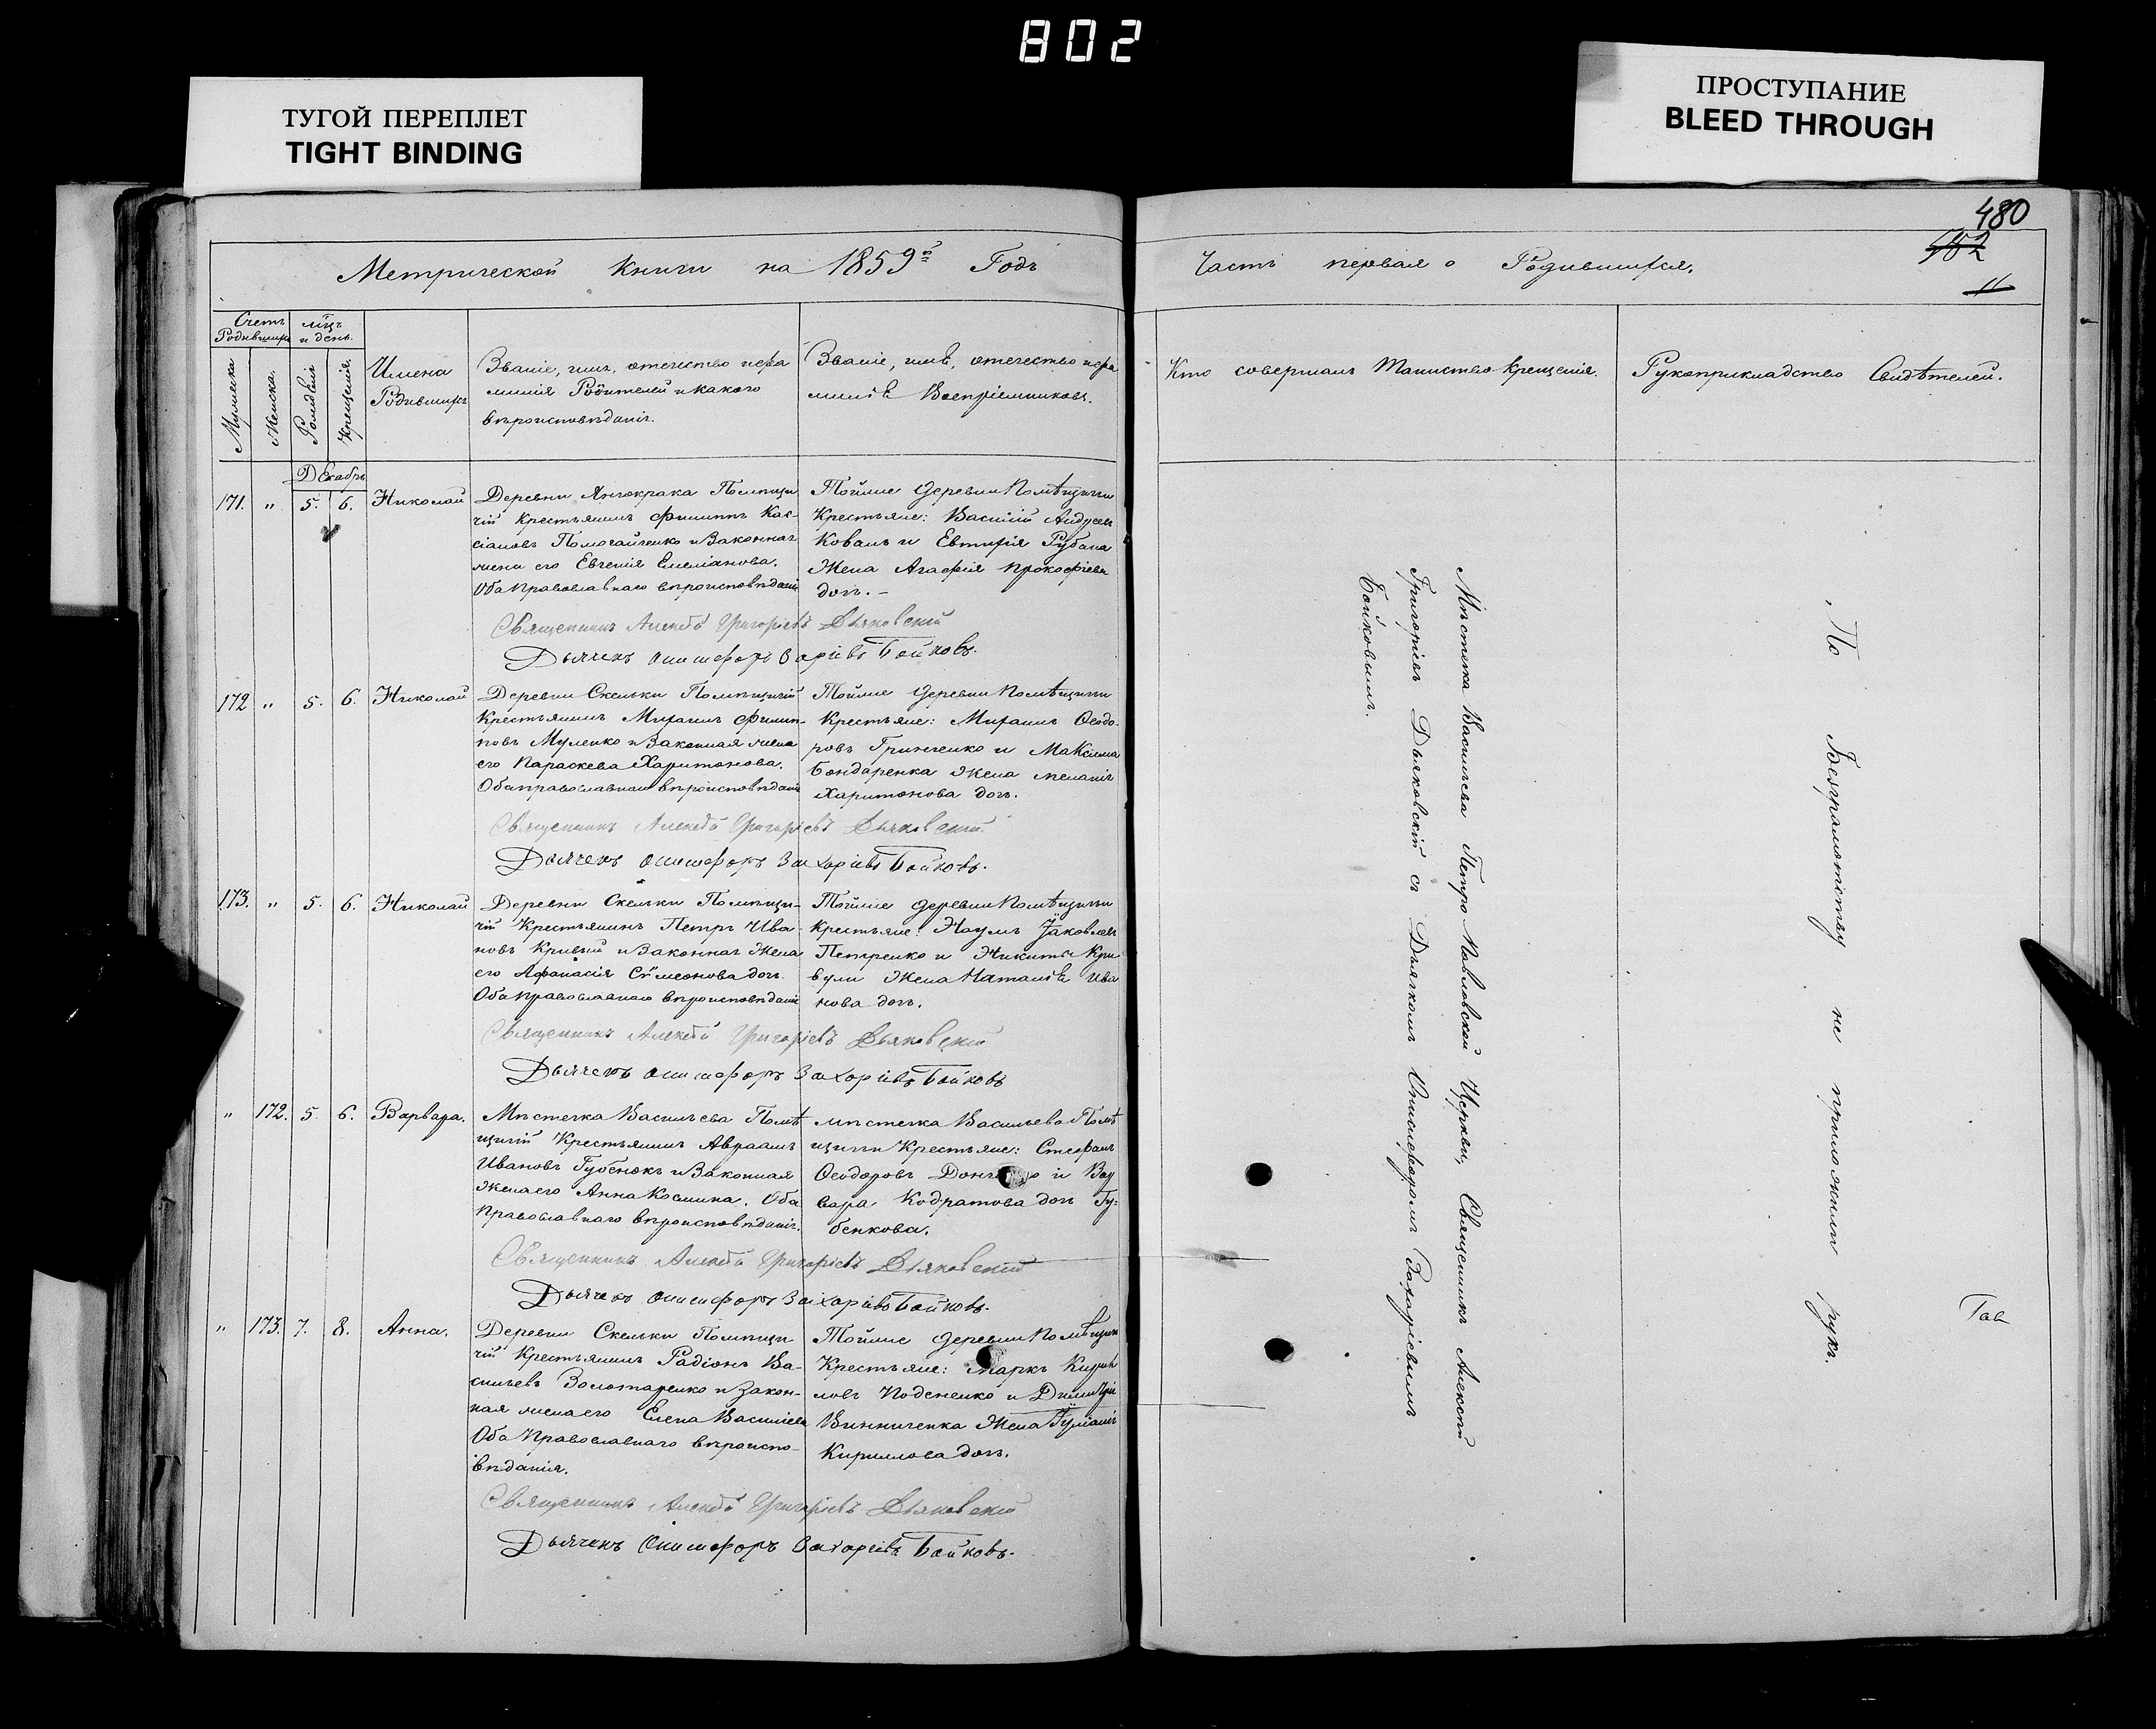 802
ТУГОЙ ПЕРЕПЛЕТ
TIGHT BINDING
ПРОСТУПАНИЕ
BLEED THROUGH
Метрической Книги на 1859й Годъ
Счетъ Родившихся
мѣцъ и день.
Мужеска
Женска.
Рожденія
Крещенія.
Имена
Родившихся
Званіе, имя, отечество и фа
милія Родителей и какого
вѣроисповѣданія.
Званіе, имя, отечество и фа
милія Воспріемниковъ.
Декабрь
171. " 5. 6. Николай
Деревни Янчокрака Помѣщи
чій Крестьянинъ Филиппъ Кас-
сіановъ Помогайченко и Законная
жена его Евгенія Емеліанова.
Оба Православнаго вѣроисповѣданія
Тойже деревни Помѣщичьи
Крестьяне: Василій
Коваль и Евтихія Рубана
Жена Агафія Прокофіева
дочь. –
Священникъ Алексѣй Григоріевъ Дьяковскій
Дьячекъ Онисифоръ Захаріевъ Бойковъ.
172 " 5. 6. Николай
Деревни Скельки Помѣщичій
Крестьянинъ Михаилъ Филип-
повъ Муленко и Законная жена
его Параскева Харитонова.
Оба православнаго вѣроисповѣданія
Тойже деревни Помѣщичьи
Крестьяне: Михаилъ Ѳеодо-
ровъ Гринченко и Максима
Бондаренка Жена Меланія
Харитонова дочь.
Священникъ Алексѣй Григоріевъ Дьяковскій
Дьячекъ Онисифоръ Захаріевъ Бойковъ.
173. " 5. 6. Николай
Деревни Скельки Помѣщи-
чій Крестьянинъ Петръ Ива-
новъ Кривый и Законная Жена
его Афанасія Сѵмеонова дочь
Оба православнаго вѣроисповѣданія
Тойже деревни Помѣщичьи
Крестьяне: Наумъ Іаковлевъ
Петренко и Никиты Кри
вули Жена Наталія Ива
нова дочь.
Священникъ Алексѣй Григоріевъ Дьяковскій
Дьячекъ Онисифоръ Захаріевъ Бойковъ
" 172. 5. 6. Варвара.
Мѣстечка Васильева Помѣ
щичій Крестьянинъ Авраамъ
Ивановъ Губенокъ и Законная
Жена его Анна Косьмина. Оба
Православнаго вѣроисповѣданія.
мѣстечка Васильева Помѣ
щичьи Крестьяне: Стефанъ
Ѳеодоровъ и Вар
вара Кодратова дочь Гу-
бенкова.
Священникъ Алексѣй Григоріевъ Дьяковскій
Дьячекъ Онисифоръ Захаріевъ Бойковъ.
" 173. 7. 8. Анна.
Деревни Скельки Помѣщи-
чій Крестьянинъ Радіонъ Ва-
сильевъ Золотаренко и Закон-
ная жена его Елена Васильева
Оба Православнаго вѣроиспо-
вѣданія.
Тойже деревни Помѣщичьи
Крестьяне: Маркъ Кирил
ловъ и Димитрія
Винниченка Жена Іуліанія
Кириллова дочь.
Священникъ Алексѣй Григоріевъ Дьяковскій
Дьячекъ Онисифоръ Захаріевъ Бойковъ.
480
11
Часть первая о Родившихся.
Кто совершалъ Таинство Крещенія.
Рукоприкладство Свидѣтелей.
Мѣстечка Васильева Петро Павловской Церкви, Священникъ Алексѣй
Григоріевъ Дьяковскій съ Дьячкомъ Онисифоромъ Захаріевымъ
Бойковымъ.
По Безграмотству не приложили рукъ.